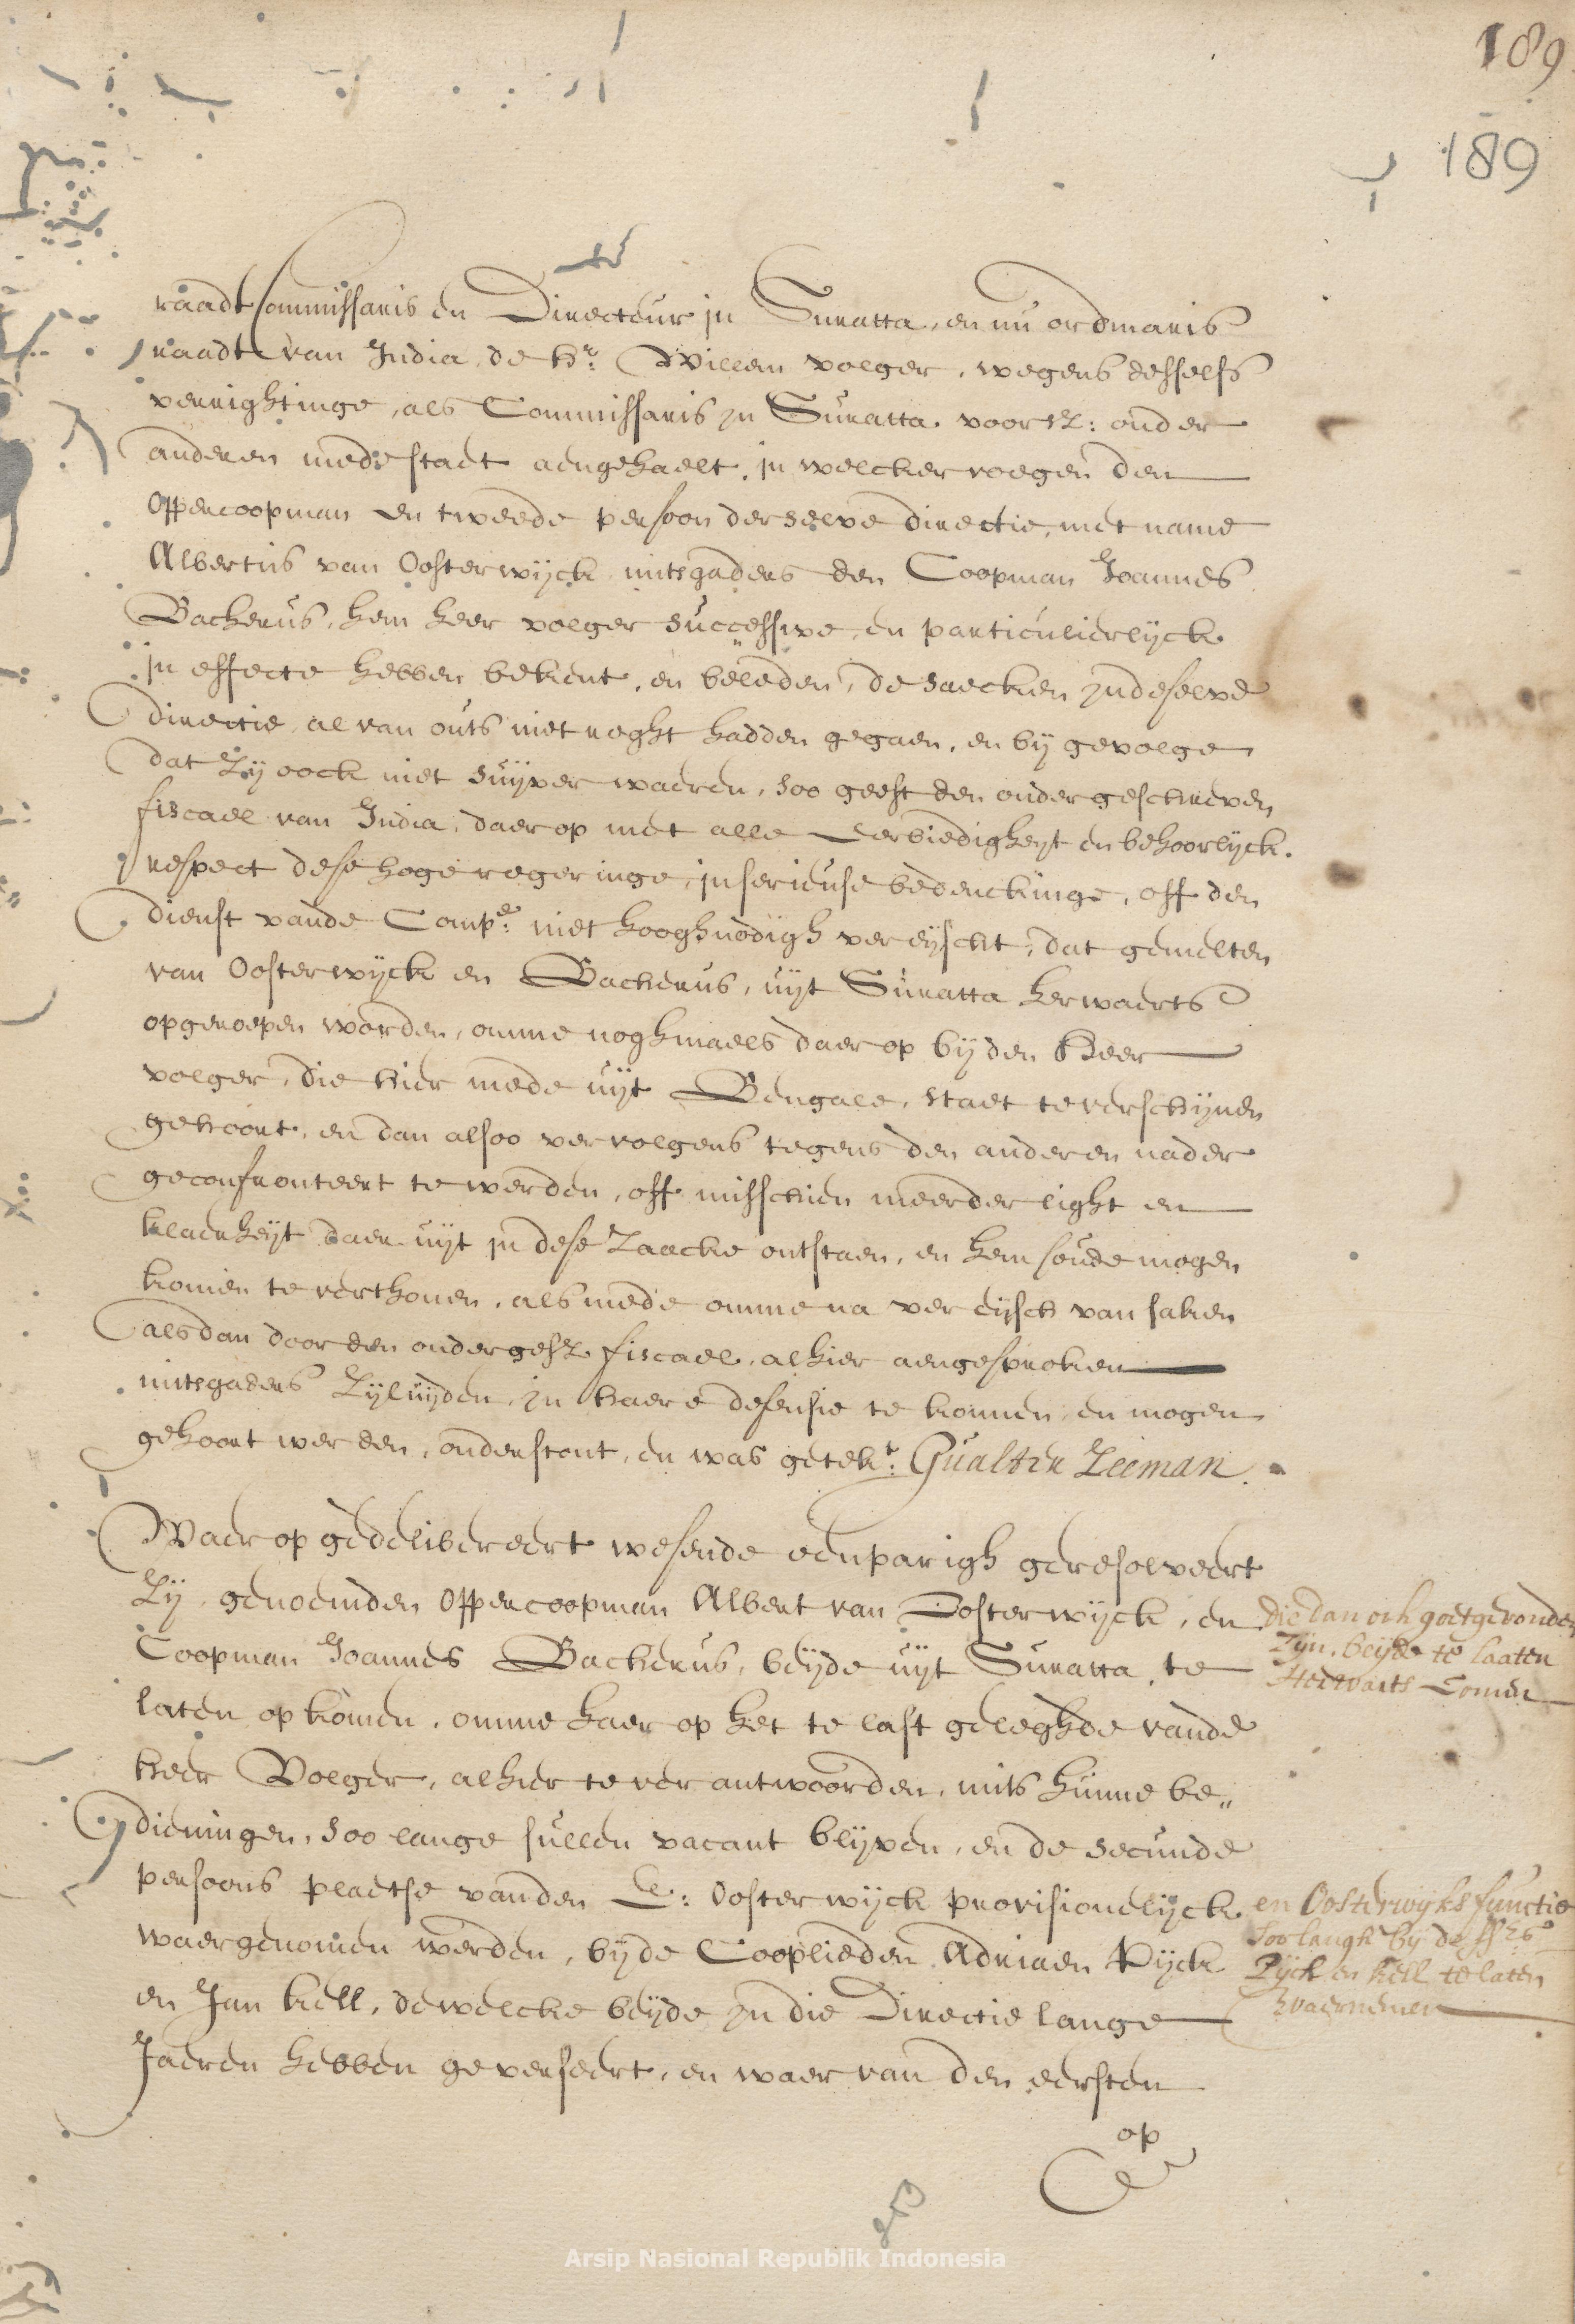 189
189
raadt Commissaris en Directeur in Suratta, en nu ordinaris
raadt van India, de hr: Willem volger, wegens desselfs
verrightinge, als Commissaris in Suratta voorsz: onder
anderen mede staet aengehaelt, in welcker voegen den
Oppercoopman en tweede persoon derselve directie, met name
Albertus van Oosterwijck mitsgaders den Coopman Joannes
Backerus, hem heer volger successive, en particulierlijck
in effecte hebben bekent, en beleden, de saecken in deselve
directie, al van outs niet reght hadden gegaen, en bij gevolge
dat zij oock niet suijver waeren, soo geeft den ondergeschreven
fiscael van India, daerop met alle eerbiedigheijt en behoorlijck
respect dese hoge regeringe, in serieuse bedenckinge, off den
dienst vande Compe: niet hooghnodigh vereijscht, dat gemelten
van Oosterwijck en Backerus, uijt Suratta herwaerts
opgeroepen worden, omme noghmaels daerop bij den Heer
volger, die hier mede uijt Bengale, staet te verschijnen
gehoort, en dan alsoo vervolgens tegens den anderen nader
geconfronteert te werden, off misschien meerder light en
klaerheijt daer uijt in dese zaacke ontstaen, en hem soude mogen
komen te verthonen, als mede omme na vereijsch van saken
alsdan door den ondergesz. fiscael, alhier aengesproken
mitsgaders zijluijden, in haere defensie te konnen en mogen
gehoort werden, onderstont, en was getekt: Gualter Zeeman.
Waer op gedelibereert wesende eenparigh geresolveert
zij genoemden Oppercoopman Albert van Oosterwijck, en
Coopman Joannes Backerus, beijde uijt Suratta te
laten opkomen, omme haer op het te last geleghde vande
heer Volger, alhier te verantwoorden, mits hunne be„
dieningen, soo lange sullen vacant blijven, en de secunde
persoons plaetse vanden E: Oosterwijck provisionelijck
waergenomen werden, bijde Cooplieden Adriaen Pijck
en Jan kell, dewelcke beijde in die Directie lange
Jaeren hebben geverseert, en waer van den eersten
op
die dan ook goetgevonden
zijn, beijde te laaten
Herwaarts Comen
en Oosterwijks functie
Soo langh bij de
Pijck en kell te laten
waernemen
Arsip Nasional Republik Indonesia